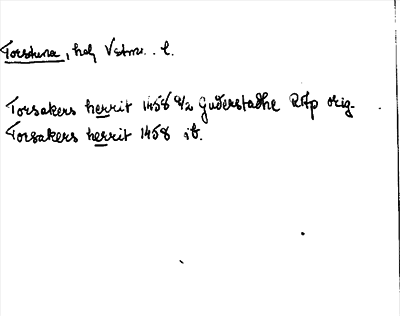 Torstuna, hd, Vstm. l.
Torsakers herrit 1458 8/2 Guderstadhe RAp orig.
Torsakers herrit 1458 ib.